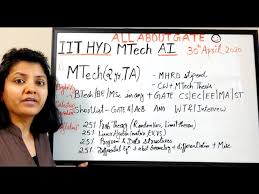 ALL ABOUT GATE
IIT HYD MTech AI 30th April, 2020
MTech (2 yr, TA) - MHRD stipend
- CW + MTech Thesis
Eligibility BTech/BE/MSc in any + GATE CS|EC|EE|MA|ST
Selection Shortlist - GATE/ACB AND WT & Interview
Syllabus 25% Prob Theory (Random Var, Limit Theorem)
25% Linear Algebra (matrix, EV, VS)
25% Program & Data Structures
25% Differential Eq 1st &